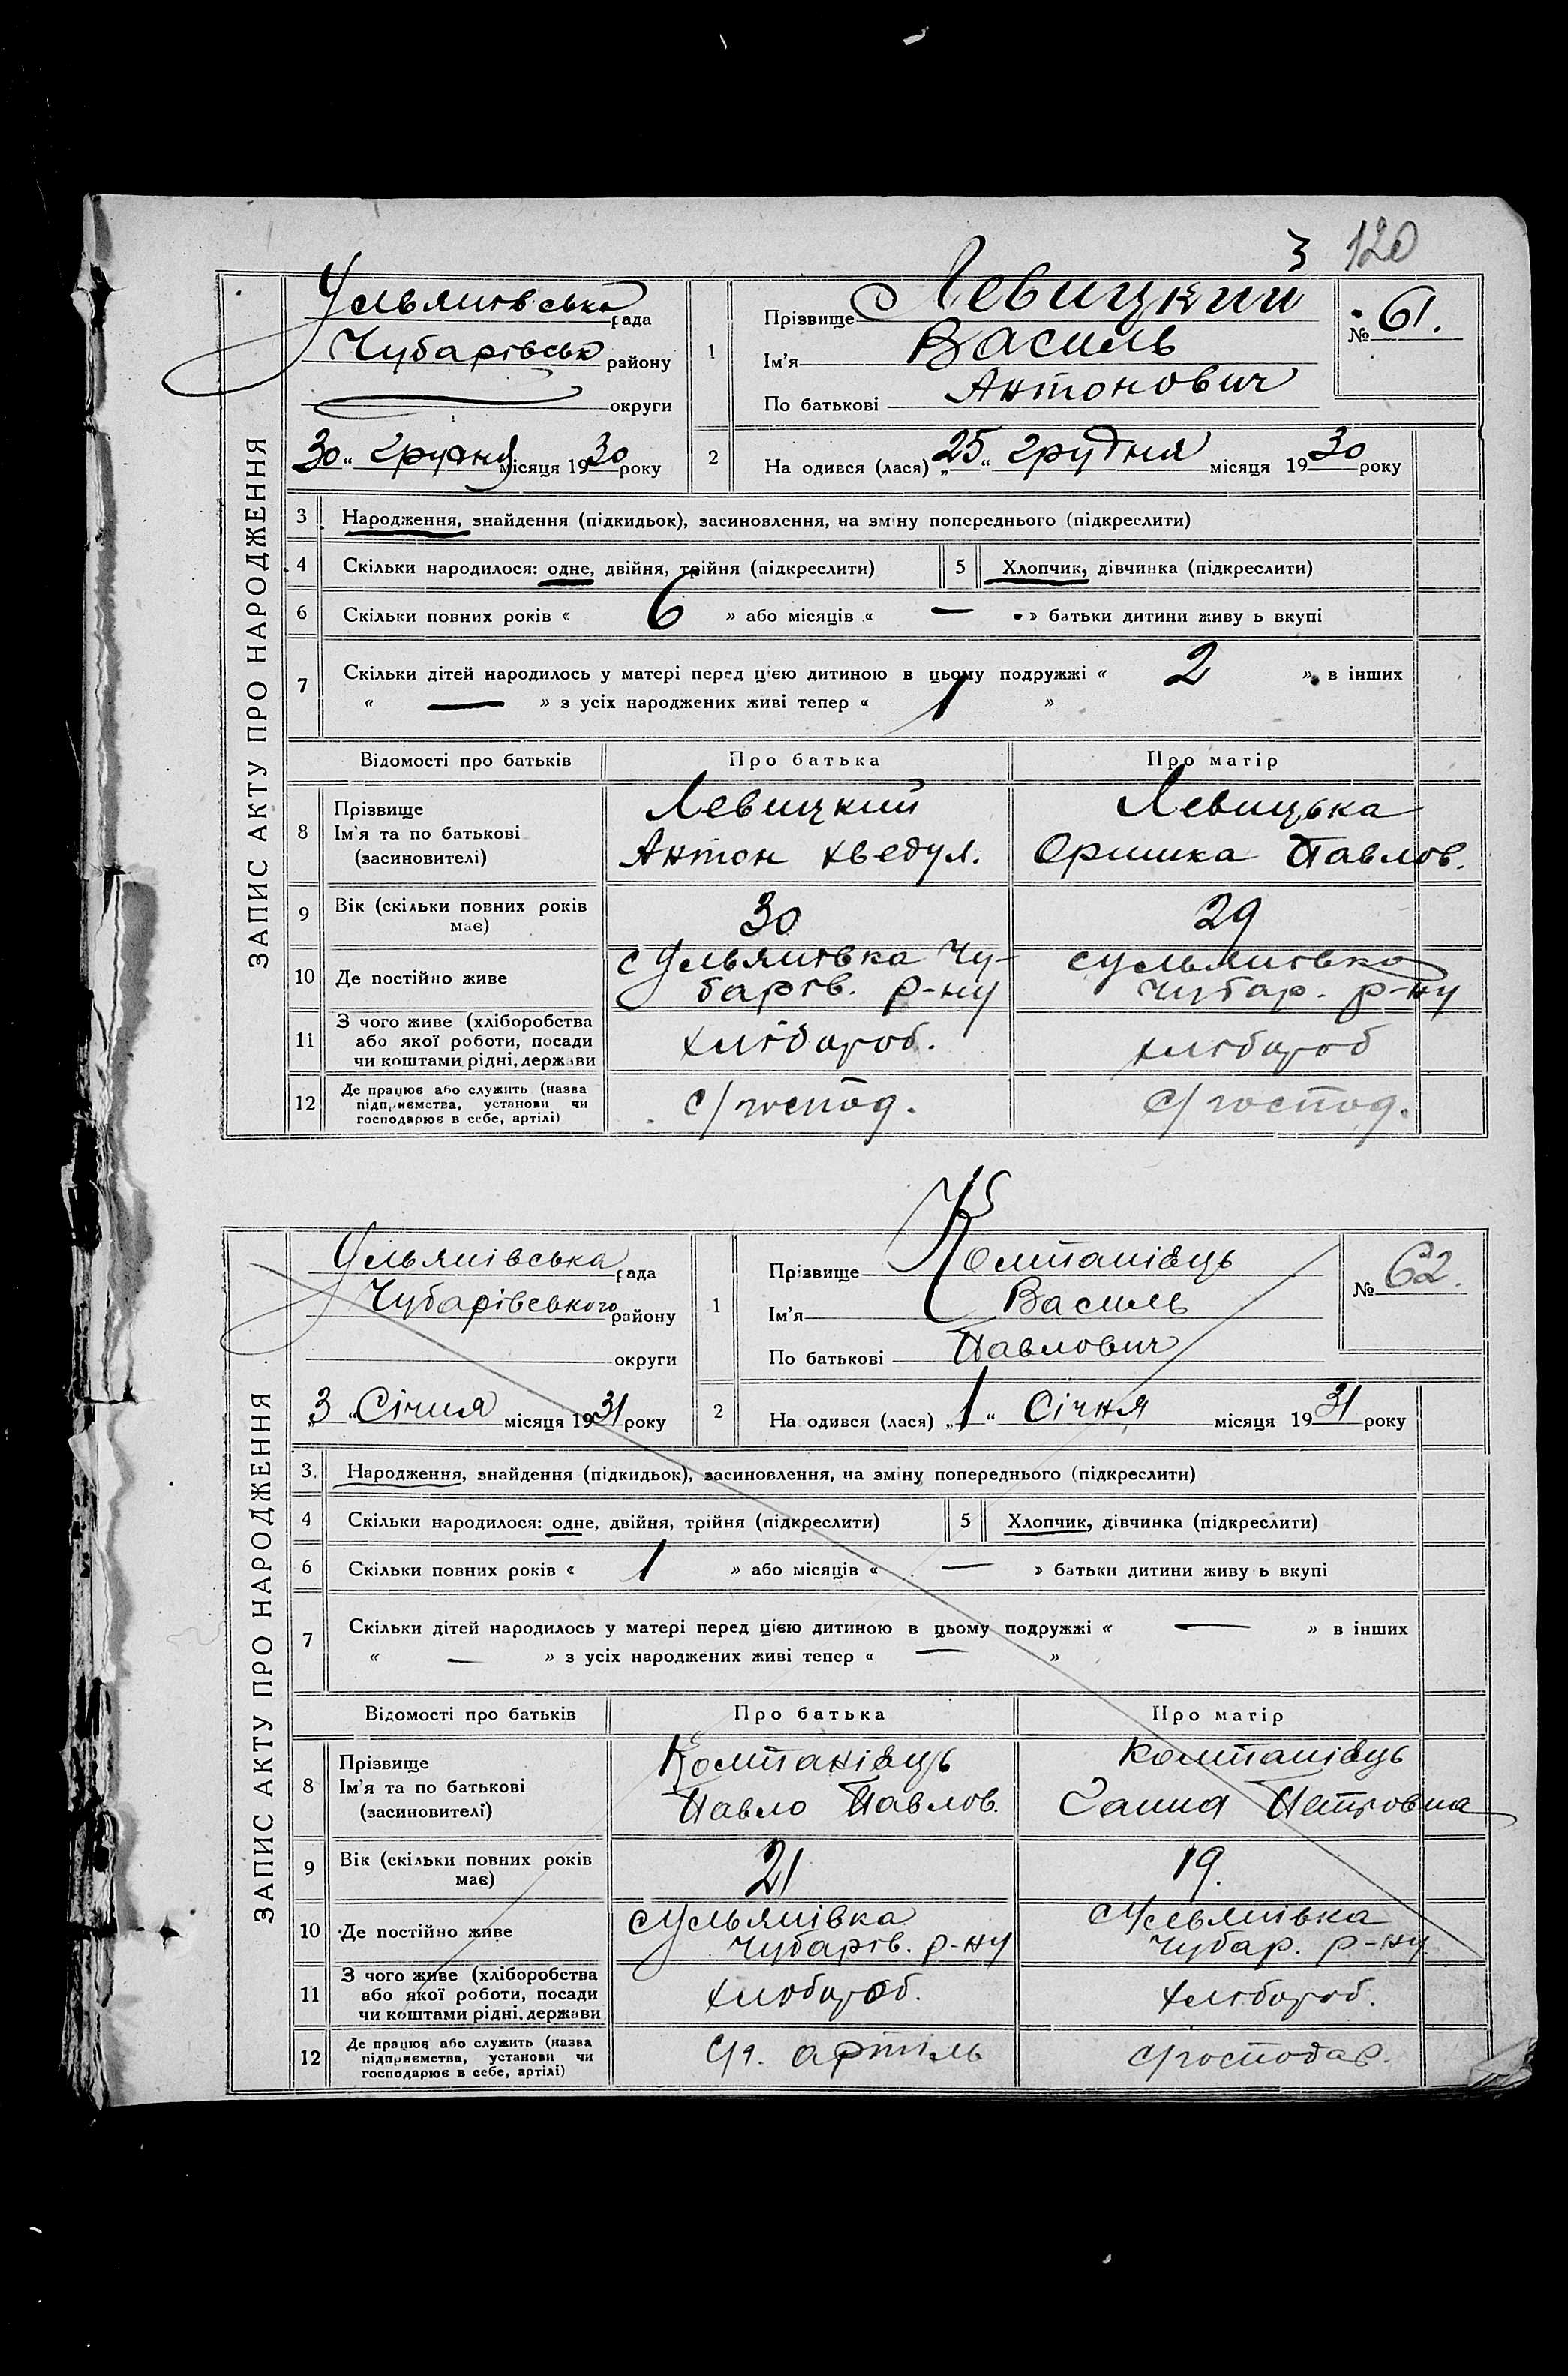 3 120
ЗАПИС АКТУ ПРО НАРОДЖЕННЯ
Ульянівська рада
Чубарівськ району
округи
30 “ грудня місяця 1930 року
1
Прізвище Левицкий
Ім'я Василь
По батькові Антонович
№ 61.
2
На одився (лася) „25“ грудня місяця 1930 року
3 Народження, знайдення (підкидьок), засиновлення, на зміну попереднього (підкреслити)
4 Скільки народилося: одне, двійня, трійня (підкреслити) 5 Хлопчик, дівчинка (підкреслити)
6 Скільки повних років « 6 » або місяців « — » батьки дитини живу ь вкупі
7 Скільки дітей народилось у матері перед цією дитиною в цьому подружжі « 2 » в інших
« — » з усіх народжених живі тепер « 1 »
Відомості про батьків Про батька Про матір
8 Прізвище
Ім'я та по батькові
(засиновителі)
Левицкий
Антон Хведул.
Левицька
Оришка Павлов.
9 Вік (скільки повних років
має)
30 29
10 Де постійно живе
с Ульянівка Чу-
барів. р-ну
с Ульянівка
Чубар. р-ну
11 З чого живе (хліборобства
або якої роботи, посади
чи коштами рідні, держави
хлібороб. хлібороб
12 Де працює або служить (назва
підприємства, установи чи
господарює в себе, артілі)
с/господ. с/господ.
ЗАПИС АКТУ ПРО НАРОДЖЕННЯ
Ульянівська рада
Чубарівського району
округи
„3“ Січня місяця 1931 року
1
Прізвище Компанієць
Ім'я Василь
По батькові Павлович
№ 62.
2
На одився (лася) „1“ Січня місяця 1931 року
3. Народження, знайдення (підкидьок), засиновлення, на зміну попереднього (підкреслити)
4 Скільки народилося: одне, двійня, трійня (підкреслити) 5 Хлопчик, дівчинка (підкреслити)
6 Скільки повних років « 1 » або місяців « — » батьки дитини живу ь вкупі
7 Скільки дітей народилось у матері перед цією дитиною в цьому подружжі « — » в інших
« — » з усіх народжених живі тепер « — »
Відомості про батьків Про батька Про матір
8 Прізвище
Ім'я та по батькові
(засиновителі)
Компанієць
Павло Павлов.
Компанієць
Ганна Петровна
9 Вік (скільки повних років
має)
21 19.
10 Де постійно живе
с Ульянівка
Чубарів. р-ну
с Ульянівка
Чубар. р-ну
11 З чого живе (хліборобства
або якої роботи, посади
чи коштами рідні, держави
хлібороб. хлібороб.
12 Де працює або служить (назва
підприємства, установи чи
господарює в себе, артілі)
артіль с/господар.